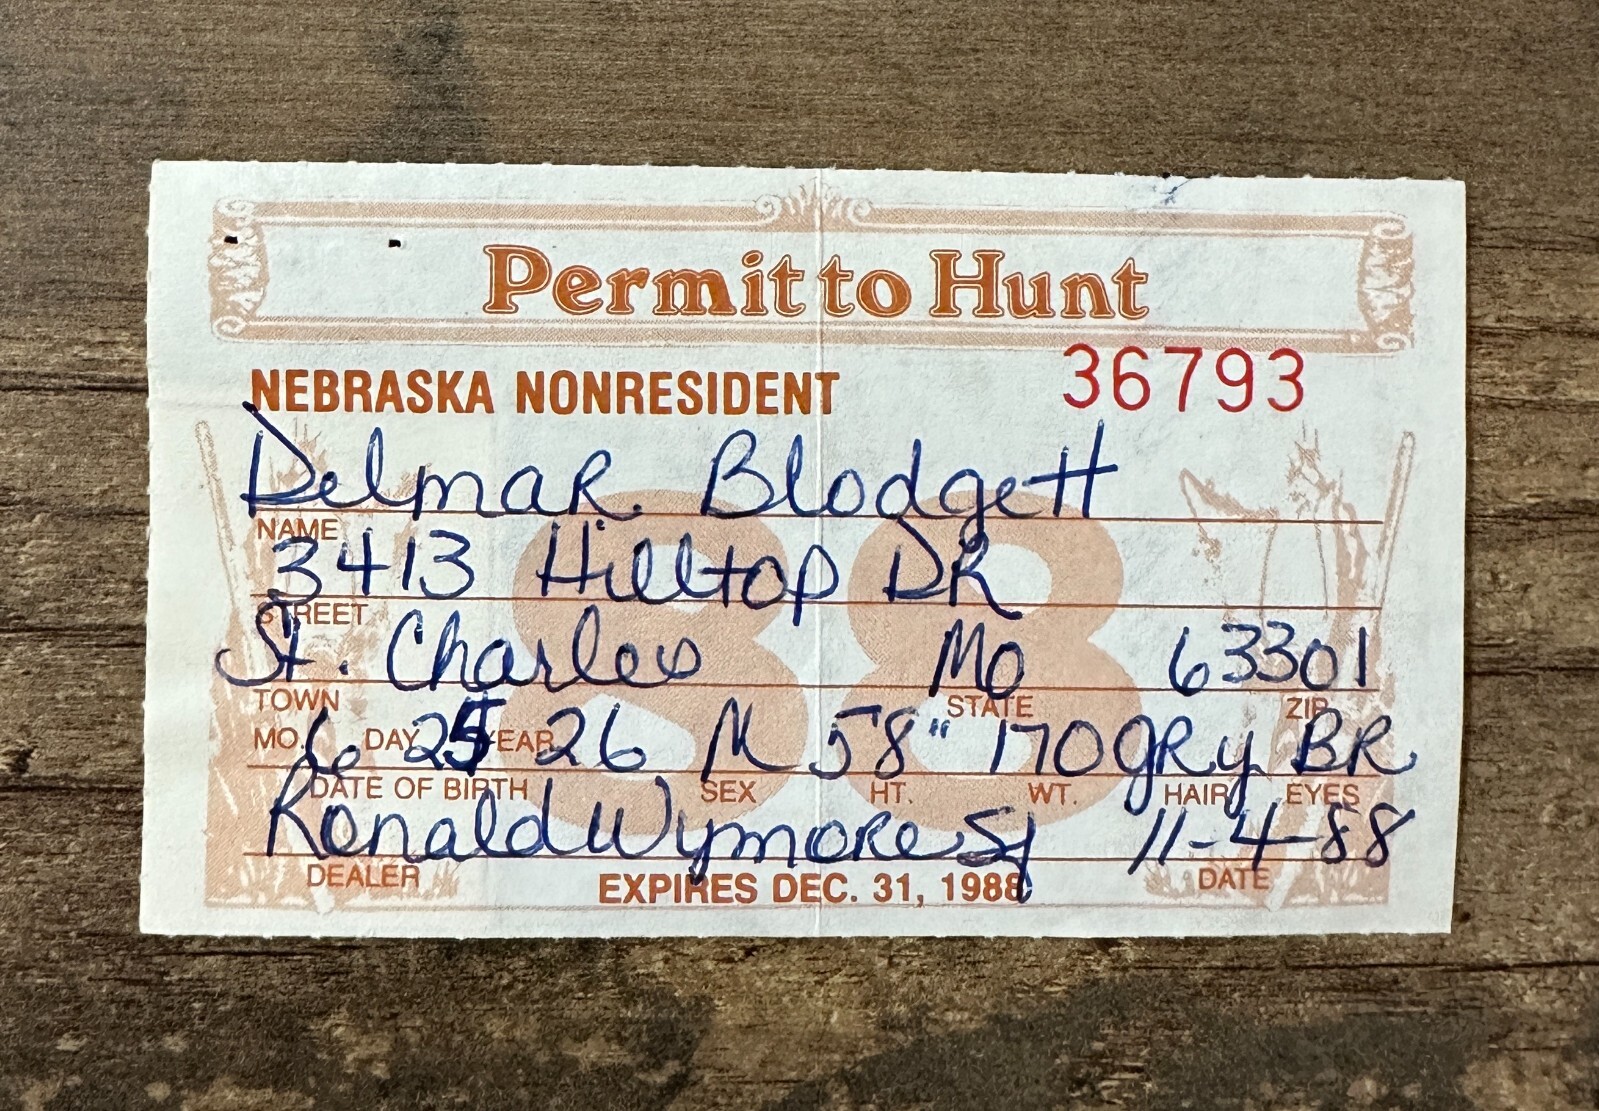 Permit to Hunt
NEBRASKA NONRESIDENT 36793
Delmar Blodgett
NAME
3413 Hilltop DR
STREET
St. Charles Mo 63301
TOWN STATE ZIP
MO. 6 DAY 25 YEAR 26 M 58" 170 GRy BR
DATE OF BIRTH SEX HT. WT. HAIR EYES
Ronald Wymore 11-4-88
DEALER EXPIRES DEC. 31, 1988 DATE
88